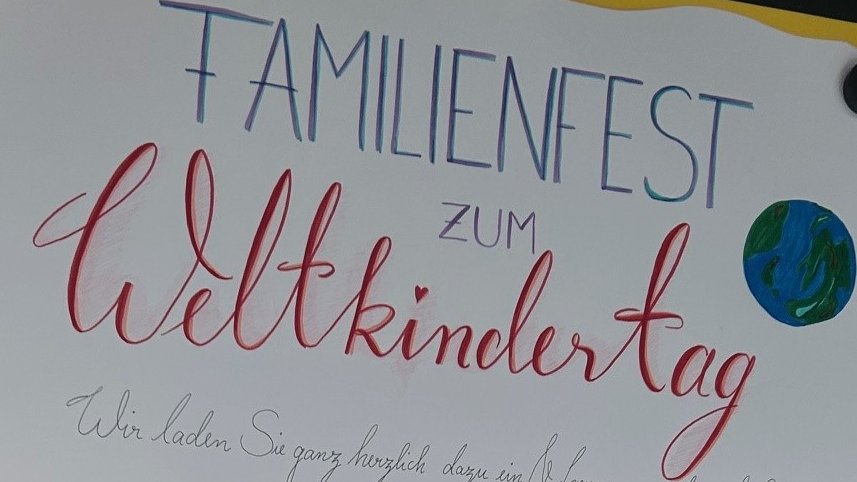 FAMILIENFEST
ZUM
Weltkindertag
Wir laden Sie ganz herzlich dazu ein